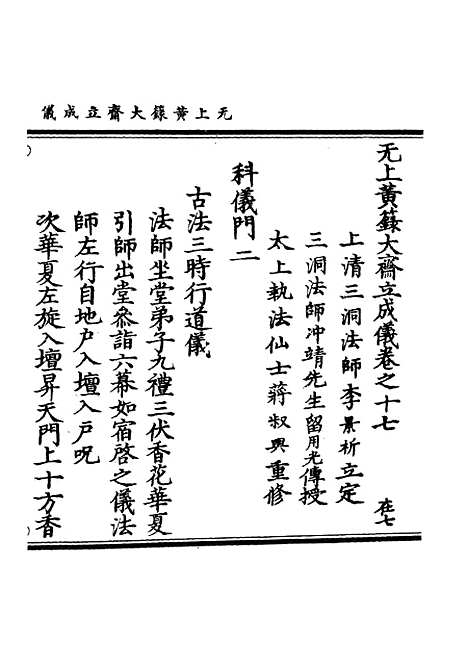 无上黄籙大齋立成儀
无上黃籙大齋立成儀卷之十七 在七
上清三洞法師李景祈立定
三洞法師冲靖先生留用光傳授
太上執法仙士蔣叔輿重修
科儀門二
古法三時行道儀
法師坐堂弟子九禮三伏香花華夏
引師出堂叅詣六幕如宿啓之儀法
師左行自地户入壇入戶呪
次華夏左旋入壇昇天門上十方香